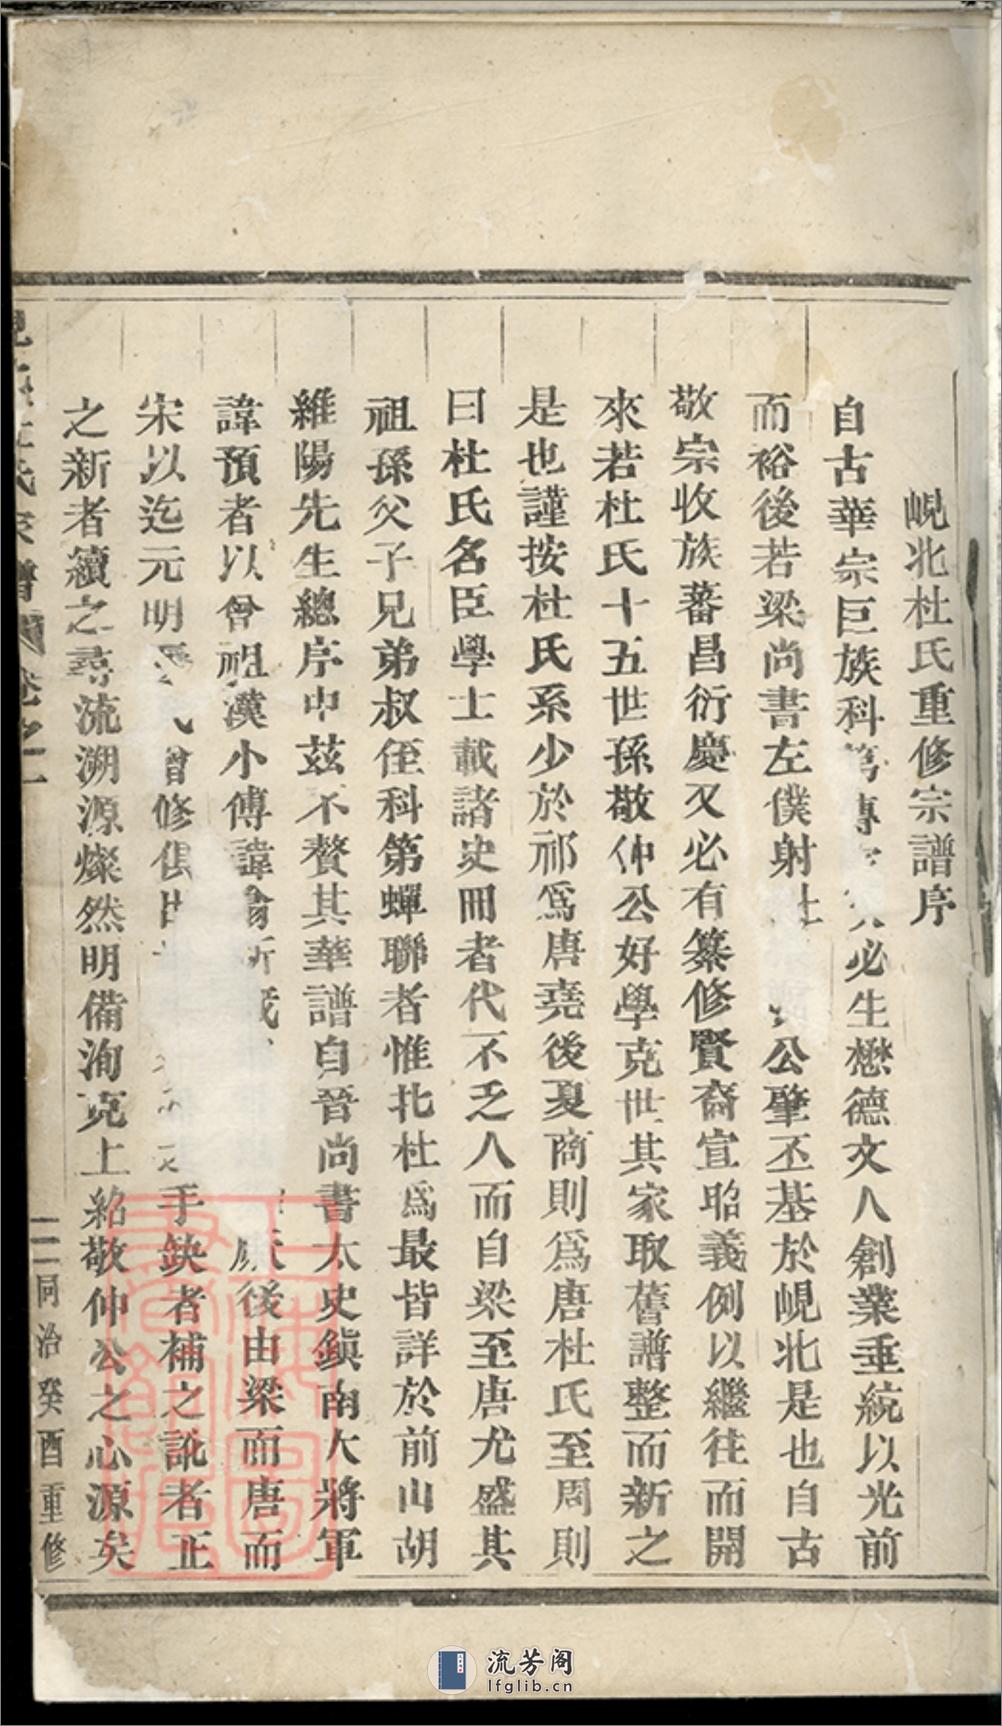 峴北杜氏重修宗譜序
自古華宗巨族科第傳家必生懋德文人創業垂統以光前
而裕後若梁尚書左僕射杜公肇丕基於峴北是也自古
敬宗收族蕃昌衍慶又必有纂修賢裔宣昭義例以繼往而開
來若杜氏十五世孫敬仲公好學克世其家取舊譜整而新之
是也謹按杜氏系少於祁爲唐堯後夏商則爲唐杜氏至周則
曰杜氏名臣學士載諸史冊者代不乏人而自梁至唐尤盛其
祖孫父子兄弟叔侄科第蟬聯者惟北杜爲最皆詳於前山胡
維陽先生總序中茲不贅其華譜自晉尚書太史鎮南大將軍
諱預者以曾祖漢小傅諱 後由梁而唐而
宋以迄元明 修俱出 手缺者補之訛者正
之新者續之尋流溯源燦然明備洵克上紹敬仲公之心源矣
杜氏宗譜 卷之一
二 同治癸酉重修
流芳阁
lfglib.cn